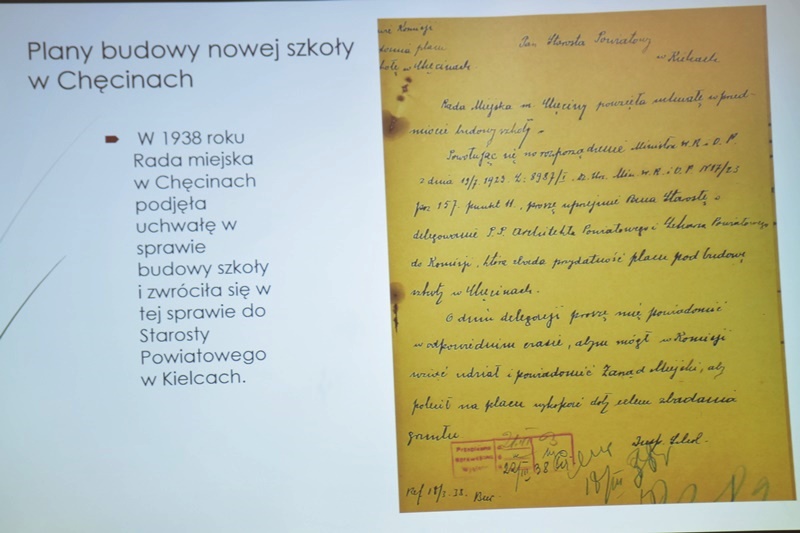 Plany budowy nowej szkoły
w Chęcinach
W 1938 roku
Rada miejska
w Chęcinach
podjęła
uchwałę w
sprawie
budowy szkoły
i zwróciła się w
tej sprawie do
Starosty
Powiatowego
w Kielcach.
Komisji
placu
w Chęcinach
Pan Starosta Powiatowy
w Kielcach
Rada Miejska m. Chęciny powzięła uchwałę w przed-
miocie budowy szkoły.
Powołując się na rozporządzenie Ministra W.R. i O.P.
z dnia 1923 Dz. Urz. Min. W.R. i O.P. No 17/23
poz. 157. punkt H. proszę uprzejmie Pana Starostę o
delegowanie P.P. Architekta Powiatowego i Lekarza Powiatowego
do Komisji, która zbada przydatność placu pod budowę
szkoły w Chęcinach.
O dniu delegacji proszę mię powiadomić
w odpowiednim czasie, abym mógł w Komisji
wziąć udział i powiadomić Zarząd Miejski, aby
polecił na placu wykopać doły celem zbadania
gruntu.
Insp. Szkol.